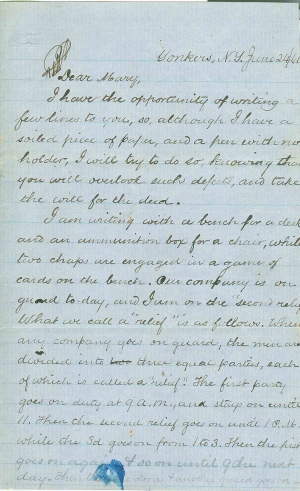 Yonkers, N.Y. June 24/61
Dear Mary,
I have the opportunity of writing a
few lines to you, so, although I have a
soiled piece of paper, and a pen with no
holder, I will try to do so, knowing that
you will overlook such defects, and take
the will for the deed.
I am writing with a bench for a desk
and an ammunition box for a chair, while
two chaps are engaged in a game of
cards on the bench. Our company is on
guard to-day, and I am on the "second relief."
What we call a "relief" is as follows. When
any company goes on guard, the men are
divided into two three equal parties, each
of which is called a "relief". The first party
goes on duty at 9 A.M., and stays on until
11. Then the second relief goes on until 1 P.M.
while the 3d goes on from 1 to 3. Then the first
goes on again & so on until 9 the next
day. Then